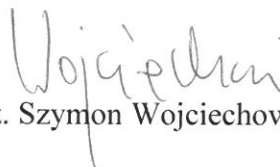 Wojciechowski
. Szymon Wojciechow